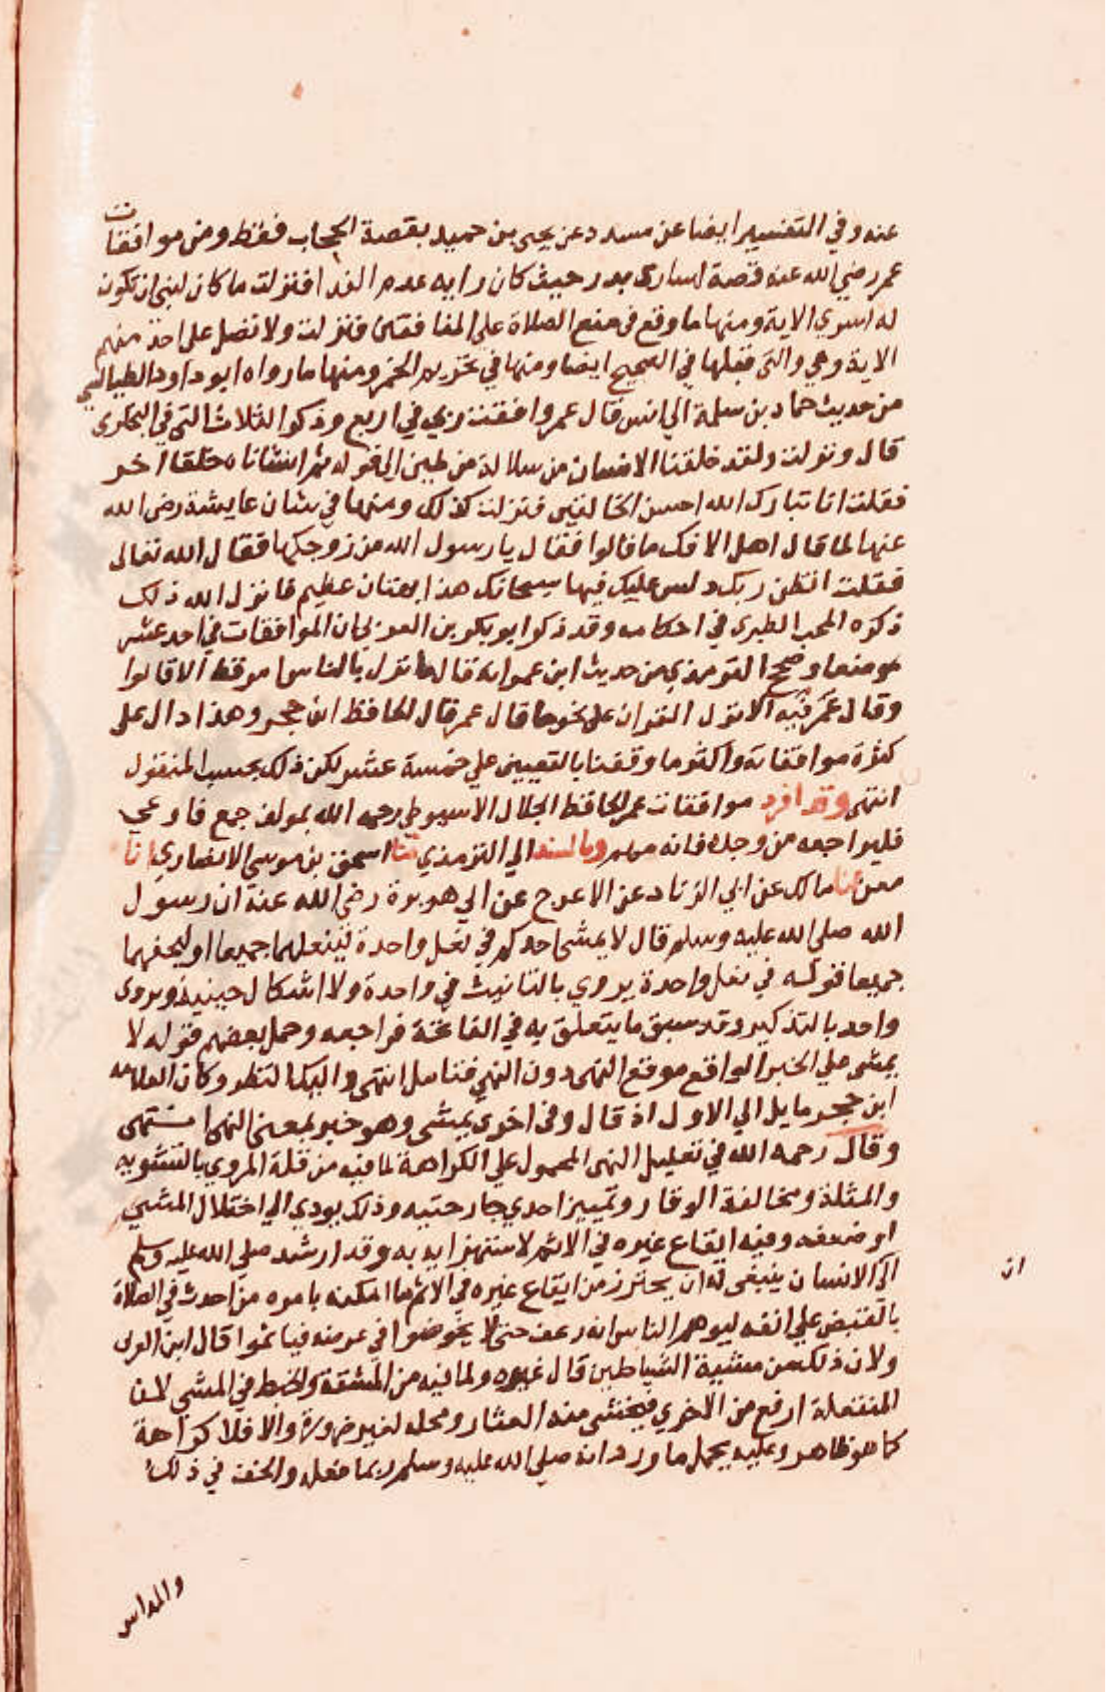 عنه وفي التفسير ايضا عن مسدد عن يحيى بن حميد بقصة الحجاب فقط ومن موافقات
عمر رضي الله عنه قصة اسارى بدر حيث كان رايه عدم الفدا فنزلت ما كان لنبي ان تكون
له اسري الاية ومنها ما وقع في منع الصلاة علي المنافقين فنزلت ولا تصل على احد منهم
الاية وهي والتي قبلها في الصحيح ايضا ومنها في تحريم الخمر ومنها ما رواه ابو داود الطيالسي
من حديث حماد بن سلمة الي انس قال عمر وافقت ربي في اربع وذكر الثلاث التي في البخاري
قال ونزلت ولقد خلقنا الانسان من سلالة من طين الي قوله ثم انشاناه خلقا اخر
فقلت انا تبارك الله احسن الخالقين فنزلت كذلك ومنها في شان عايشة رضي الله
عنها لما قال اهل الافك ما قالوا فقال يا رسول الله من زوجكها فقال الله تعالى
فقلت افتظن ربك دلس عليك فيها سبحانك هذا بهتان عظيم فانزل الله ذلك
ذكره المحب الطبري في احكامه وقد ذكر ابو بكر بن العربي ان الموافقات في احد عشر
موضعا وصحح الترمذي من حديث ابن عمر انه قال ما نزل بالناس امر قط الا قالوا
وقال عمر فيه الا نزل القران على نحو ما قال عمر قال الحافظ ابن حجر وهذا دال على
كثرة موافقاته واكثر ما وقفنا بالتعيين علي خمسة عشر لكن ذلك بحسب المنقول
انتهى وقد افرد موافقات عمر الحافظ الجلال الاسيوطي رحمه الله بمولف جمع فاوعي
فليراجعه من وجده فانه مهم وبالسند الي الترمذي ثنا اسحق بن موسى الانصاري انا
معن ثنا مالك عن ابي الزناد عن الاعرج عن ابي هريرة رضي الله عنه ان رسول
الله صلى الله عليه وسلم قال لا يمشي احدكم في نعل واحدة لينعلهما جميعا او ليحفهما
جميعا قوله في نعل واحدة يروي بالتانيث في واحدة ولا اشكال حينيذ ويروى
واحد بالتذكير وقد سبق ما يتعلق به في الفاتحة فراجعه وحمل بعضهم قوله لا
يمشي علي الخبر الواقع موقع النهي دون النهي فتامل انتهى واليكما لتنظر وكان العلامه
ابن حجر مايل الي الاول اذ قال وفي اخرى يمشي وهو خبر بمعنى النهي انتهى
وقال رحمه الله في تعليل النهي المحمول علي الكراهة لما فيه من قلة المروي بالتشويه
والمثلة ومخالفة الوقار وتمييز احدي جارحتيه وذلك يودي الي اختلال المشي
او ضعفه وفيه ايقاع غيره في الاثم لاستهزايه به وقد ارشد صلي الله عليه وسلم
الى الانسان ينبغي له ان يحترز من ايقاع غيره في الاثم ما امكنه بامره من احدث في الصلاة
بالقبض علي انفه ليوهم الناس انه رعف حتى لا يخوضوا في عرضه فياثموا قال ابن العربي
ولان ذلك من مشية الشياطين قال غيره ولما فيه من المشقة والخبط في المشي لان
المنتعلة ارفع من الاخري فيخشى منه العثار ومحله لغير ضرورة والا فلا كراهة
كما هو ظاهر وعليه يحمل ما ورد انه صلي الله عليه وسلم ربما فعله والخف في ذلك
ان
والمداس